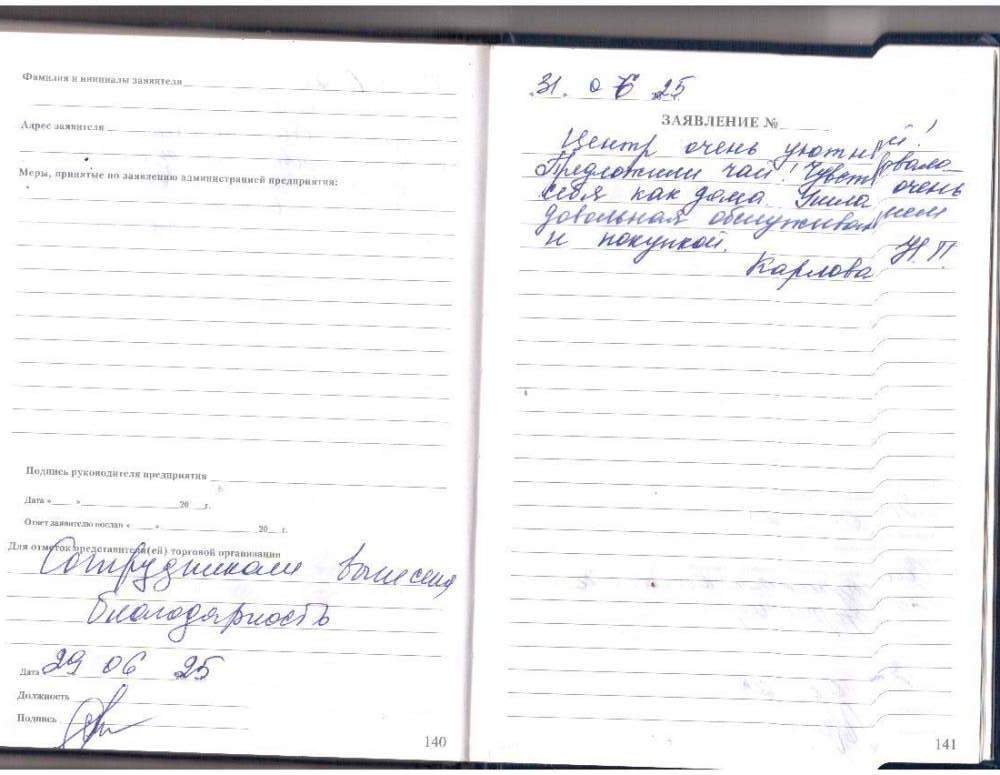 Фамилия и инициалы заявителя
Адрес заявителя
Меры, принятые по заявлению администрацией предприятия:
Подпись руководителя предприятия
Дата « » 20 г.
Ответ заявителю послан « » 20 г.
Для отметок представителя(ей) торговой организации
Сотрудникам вынесена
благодарность
Дата 29 06 25
Должность
Подпись
140
31. 06 25
ЗАЯВЛЕНИЕ №
Центр очень уютный!
Предложили чай! Чувствовала
себя как дома Ушла очень
довольная обслуживанием
и покупкой.
Карлова Н.П.
141